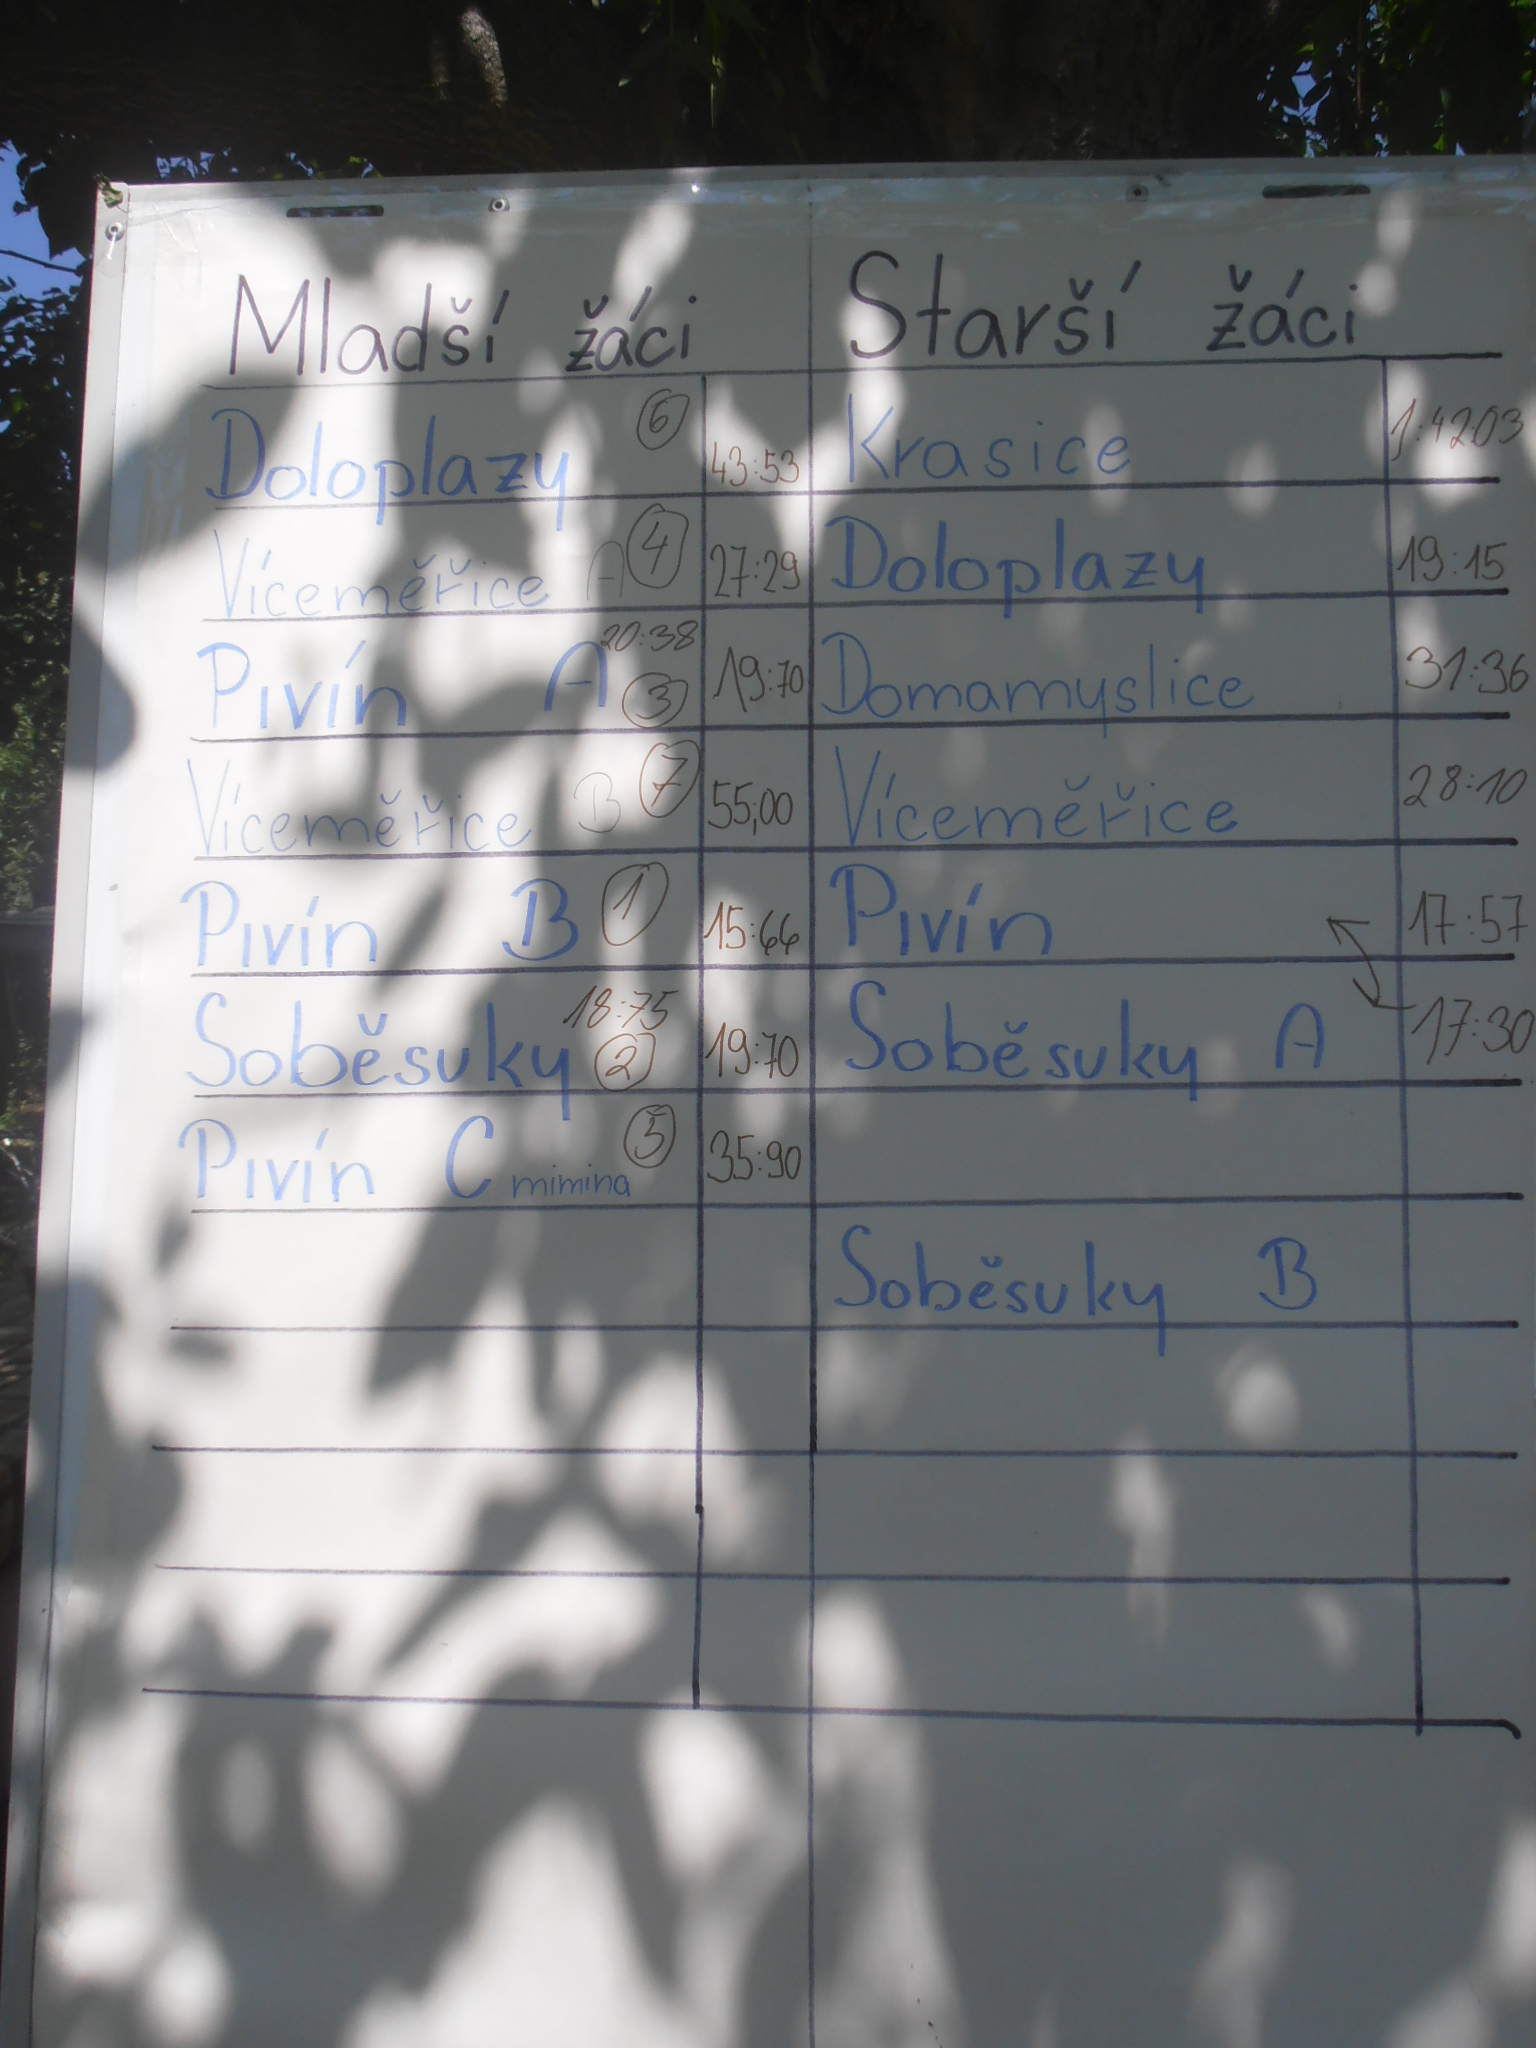 Mladší žáci
Doloplazy 6 43:53
Víceměřice A 4 27:29
Pivín A 20:38 3 19:70
Víceměřice B 7 55,00
Pivín B 1 15:66
Soběsuky 18:75 2 19:70
Pivín C mimina 5 35:90
Starší žáci
Krasice 1:42:03
Doloplazy 19:15
Domamyslice 31:36
Víceměřice 28:10
Pivín 17:57
Soběsuky A 17:30
Soběsuky B